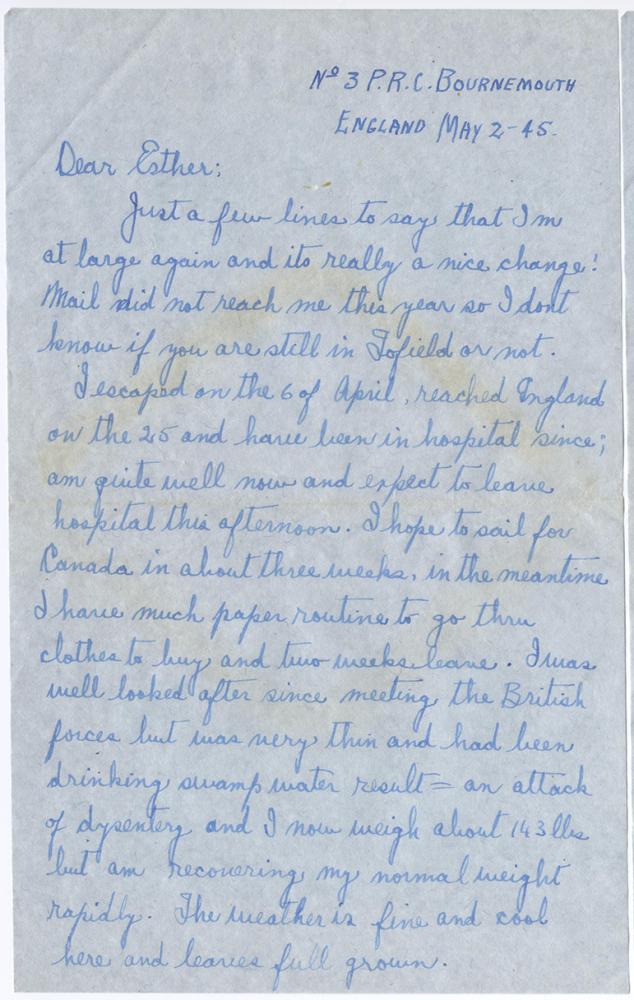 Nº 3 P.R.C. BOURNEMOUTH
ENGLAND MAY 2-45.
Dear Esther;
Just a few lines to say that I'm
at large again and its really a nice change!
Mail did not reach me this year so I dont
know if you are still in Tofield or not.
I escaped on the 6 of April, reached England
on the 25 and have been in hospital since;
am quite well now and expect to leave
hospital this afternoon. I hope to sail for
Canada in about three weeks, in the meantime
I have much paper routine to go thru
clothes to buy and two weeks leave. I was
well looked after since meeting the British
forces but was very thin and had been
drinking swamp water result = an attack
of dysentery and I now weigh about 143 lbs
but am recovering my normal weight
rapidly. The weather is fine and cool
here and leaves full grown.